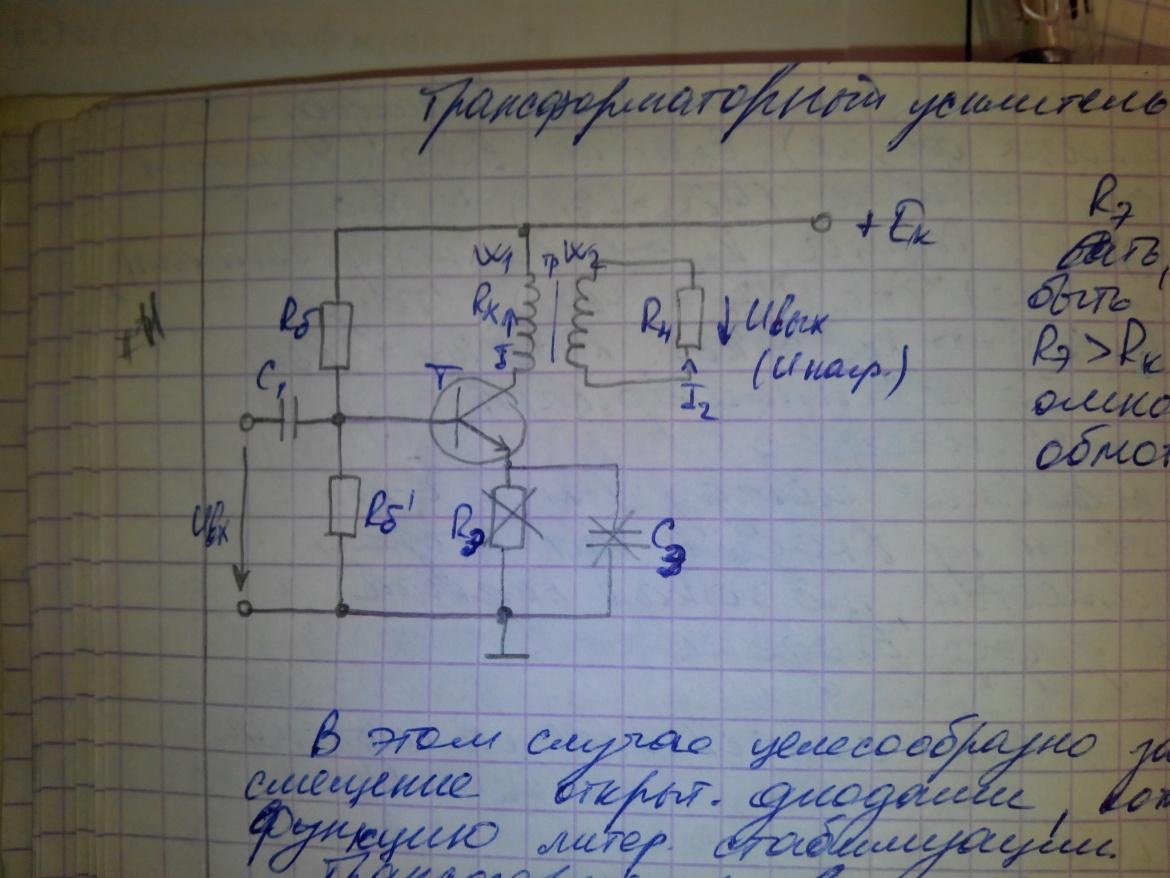 Трансформаторный усилитель
+ Eк
W1 тр W2
Rк
I
Rн
Uвых
(Uнагр.)
I2
Rб
C1
T
Uвх
Rб'
Rэ
Cэ
Rэ
быть
Rэ > Rк
омно
обмот
В этом случае целесообразно за
смещение открыт. диодами,
функцию литер. стабилизации.